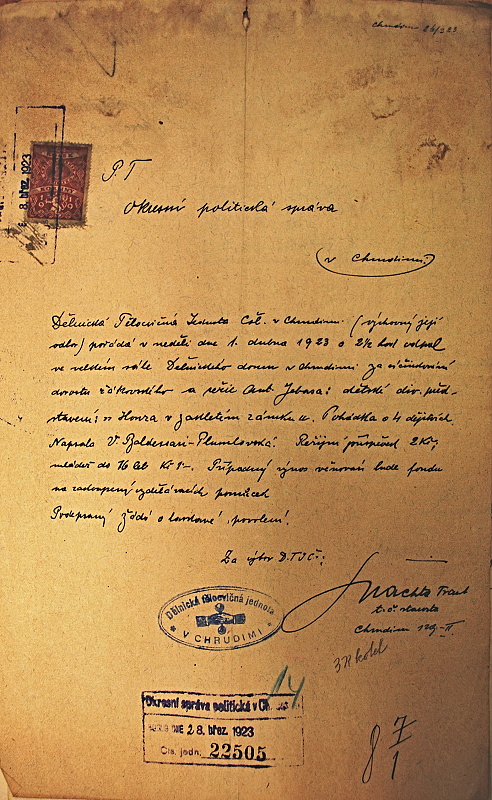 Chrudim 26/3 23
8. břez. 1923
P T
Okresní politická správa
v Chrudimi.
Dělnická Tělocvičná Jednota Čsl. v Chrudimi (výchovný její
odbor) pořádá v neděli dne 1. dubna 1923 o 2½ hod odpol
ve velkém sále Dělnického domu v Chrudimi za účinkování
dorostu žákovského a režie Ant. Jebasa: dětské div. před-
stavení: „Honza v zakletém zámku“. Pohádka o 4 dějstvích.
Napsala V Baldessari-Plumlovská. Režijní příspěvek 2 Kč,
mládež do 16 let Kč 1–. Případný výnos věnován bude fondu
na zakoupení vzdělávacích pomůcek
Podepsaný žádá o laskavé povolení.
Za výbor D.T.J.Č.:
Frant
t. č. starosta
Chrudim
Dělnická tělocvičná jednota
V CHRUDIMI
14
Okresní správa politická v
DNE 28. břez. 1923
Čís. jedn. 22505
8 7/1